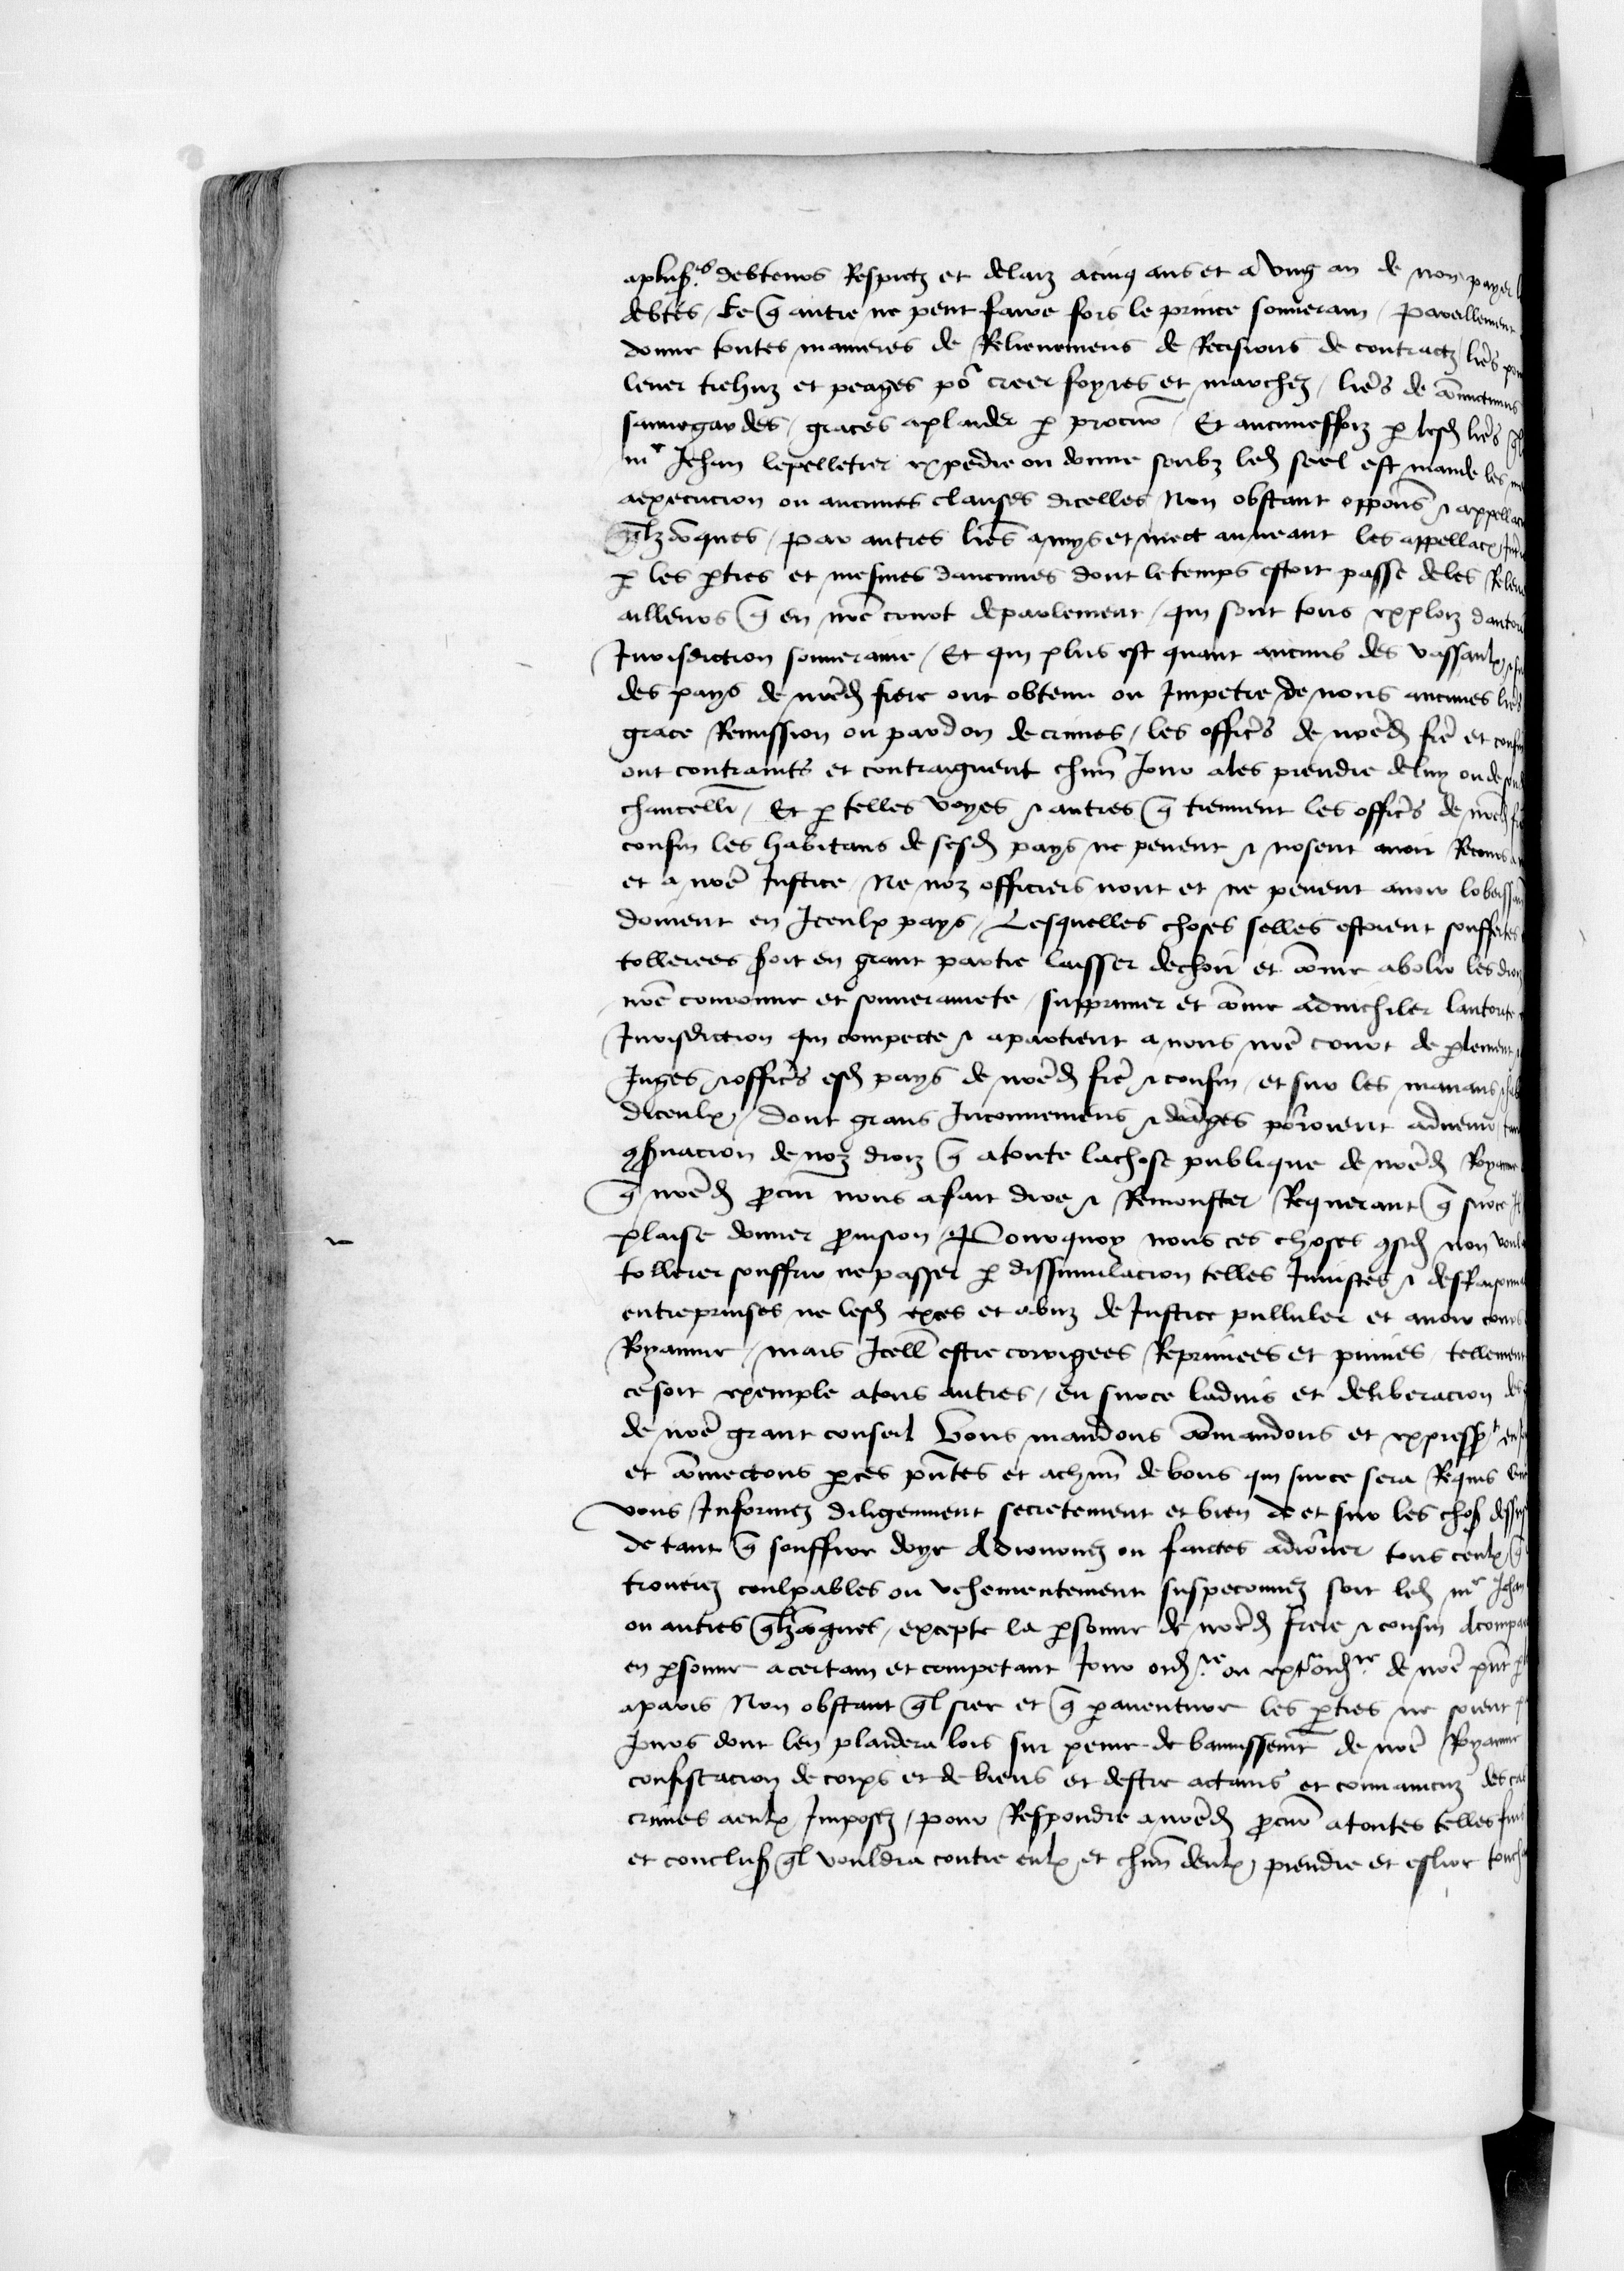 aplus.rs debteurs Respictz et delaiz a cinq ans et a ung an de non payer
debtes / Ce q̄ autre ne peut faire fors le prince souverain / pareillement
donne toutes manieres de Relievemens de Recisions de contractz l̄res po
lever trehuz et peages por̄ creer foyres et marchez / l̄res de ōmictimus
sauvegardes / graces a plaider p̄ procur̄ Et aucuneffoiz p̄ lesd l̄res
mr Jehan lepelletier expedie ou donne soubz led seel est mande les
a execucion ou aucunes clauses dicelles Non obstant opp̄ons & appellac
q̄lz ōques / par autres l̄res a mys et mect au neant les appellac̄
p̄ les p̄ties et mesmes daucunes dont le temps estoit passe de les Relev
ailleurs q̄ en n̄re court de parlement / qui sont tous exploiz dauto
Jurisdiction souveraine / Et qui plus est quant aucuns des vassaulx
des pays de n̄red frere ont obtenu ou Jmpetre de nous aucunes l̄res
grace Remission ou pardon de crimes / les offic̄rs de n̄red fr̄e et cousin
ont contrains et contraignent chūn jour a les prendre de luy ou de
chancell̄ / Et p̄ telles voyes & autres q̄ tiennent les offic̄rs de n̄red
cousin les habitans de sesd pays ne pevent & nosent avoir Recours
et a n̄re Justice Ne noz officiers nont et ne pevent avoir lobeissan
doivent en Jceulx pays / Lesquelles choses selles estoient souffertes
tollerees soit en grant partie laisser dechoir et ōme abolir les dro
n̄re couronne et souverainete / supprimer et ōme adnichiler lautorite
Jurisdiction qui compecte & apartient a nous n̄re court de p̄lement
Juges & offic̄rs esd pays de n̄red fr̄e & cousin / et sur les manans &
diceulx / Dont grans Jnconveniens & d̄ages pōroient advenir
9s̄vacion de noz droiz q̄ a toute la chose publique de n̄red Royaume
q̄ n̄red p̄cur̄ nous a fait dire & Remonstrer / Requerant q̄ sur ce Jl
plaise donner p̄vision / Pourquoy nous ces choses 9sid non voul
tollerer souffrir ne passer p̄ dissimulacion telles Jnjustes & desraisonna
entreprinses ne lesd exces et abuz de Justice pulluler et avoir cours
Royaume / mais Jcell̄ estre corrigees Reprimees et punies / tellement
ce soit exemple a tous autres / eu sur ce ladvis et deliberacion des
de n̄re grant conseil Vous mandons ōmandons et expresst en
et ōmectons p̄ ces p̄ntes et a chūn de vous qui sur ce sera Requis
vous Jnformez diligemment secretement et bien de et sur les chos dessus
de tant q̄ souffire doye Adiournez ou faictes adiōner tous ceulx q̄
trouverez coulpables ou vehementement suspeconnez soit led mr Jehan
ou autres q̄lz ōques / excepte la p̄sonne de n̄red frere & cousin A compa
en p̄sonne a certain et competant jour ordre ou extraordre de n̄re p̄nt
a paris Non obstant q̄l siee et q̄ p̄aventure les p̄ties ne soient
Jours dont len plaidera lors sur peine de bannissem̄t de n̄re Royaume
confiscacion de corps et de biens et destre actains et convaincuz des cas
crimes a eulx Jmposez / pour Respondre a n̄red p̄cur̄ a toutes telles fins
et conclus q̄l vouldra contre eulx et chūn deulx prendre et eslire touch